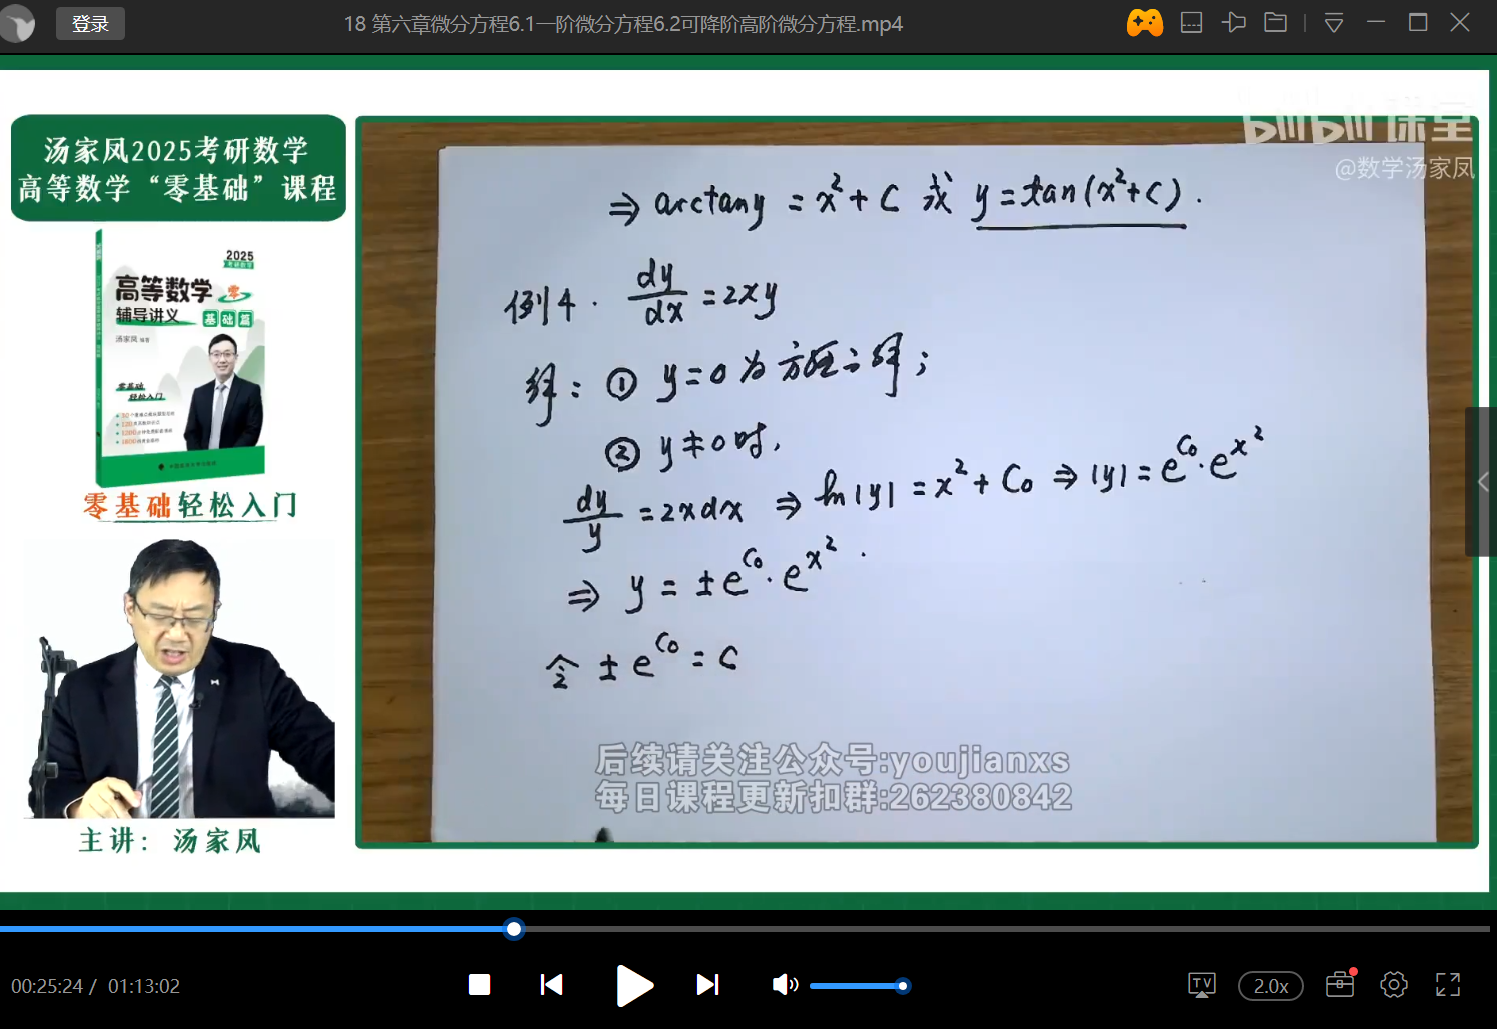 登录
18 第六章微分方程6.1一阶微分方程6.2可降阶高阶微分方程.mp4
汤家凤2025考研数学
高等数学“零基础”课程
2025
高等数学 零
辅导讲义 基础篇
汤家凤 编著
零基础
轻松入门
零基础轻松入门
主讲：汤家凤
bilibili 课堂
@数学汤家凤
⇒ arctany = x²+C 或 y=tan(x²+C).
例4. dy/dx = 2xy
解: ① y=0 为方程之解;
② y≠0时,
dy/y = 2xdx ⇒ ln|y| = x²+C₀ ⇒ |y| = e^C₀·e^x²
⇒ y = ±e^C₀·e^x².
令 ±e^C₀ = C
后续请关注公众号:youjianxs
每日课程更新扣群:262380842
00:25:24 / 01:13:02
TV
2.0x